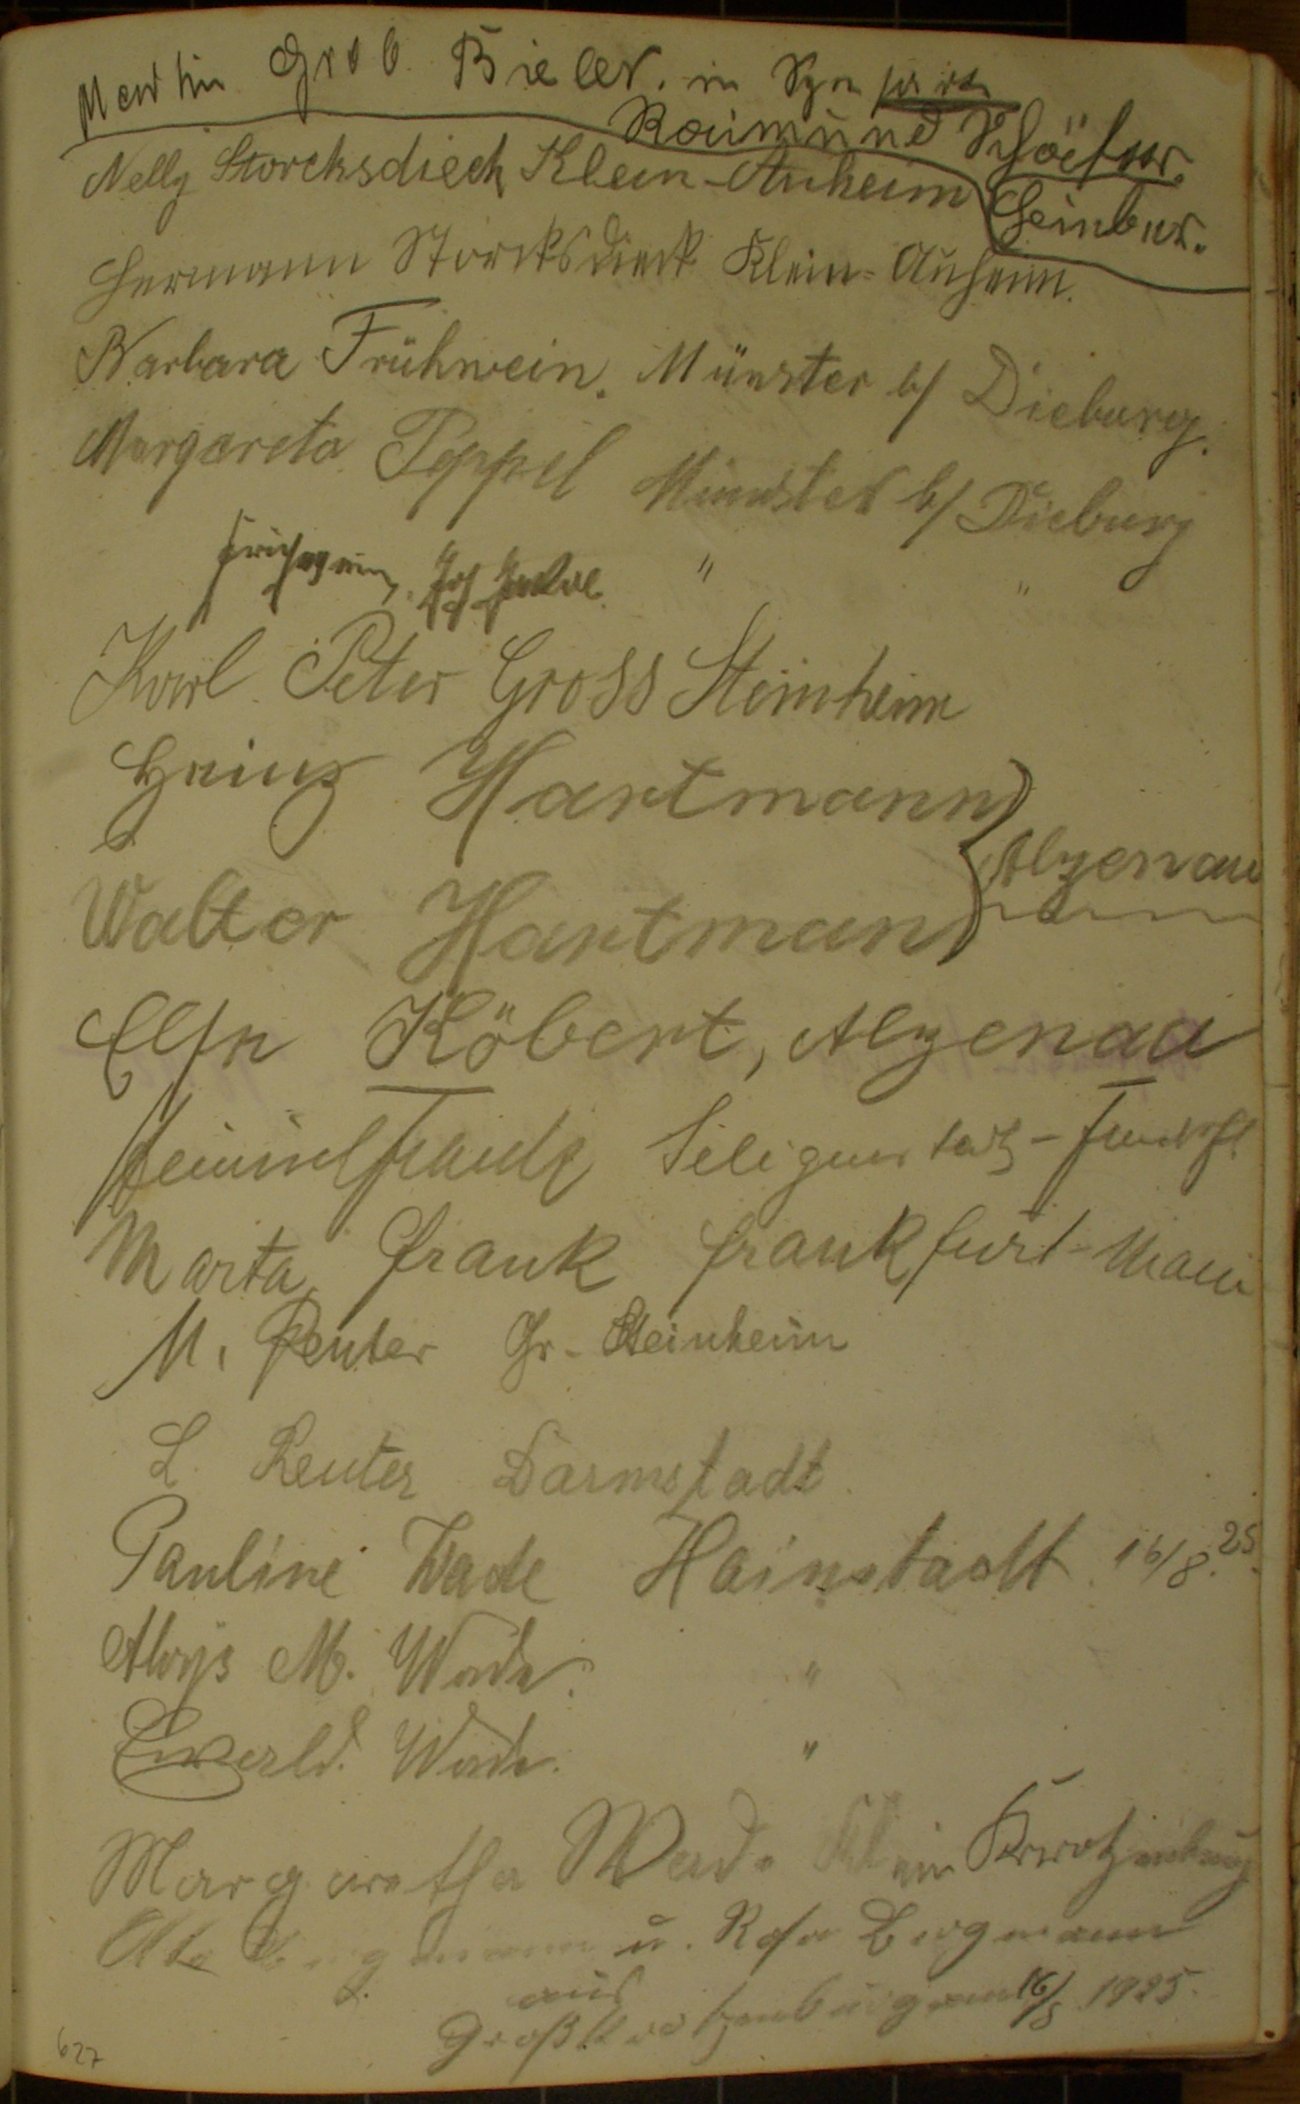 Martin Grob Bieber. in
Raimund Schäfer.
Nelly Storcksdieck Klein-Auheim
Hermann Storcksdieck Klein-Auheim.
Barbara Frühwein. Münster b/ Dieburg.
Margareta Peppel Münster b/ Dieburg
" "
Karl Peter Gross Steinheim
Heinz Hartmann
Alzenau
Walter Hartmann
Elsa Köbert, Alzenau
Seligenstadt - Frankft
Marta Frank Frankfurt-Main
M. Reuter Gr-Steinheim
L. Reuter Darmstadt
Pauline Wade Hainstadt 16/8.25.
Aloys M. Wade. "
Ewald. Wade. "
Margaretha Wade Klein Krotzenburg
u. Rosa Bergmann
aus
Großkrotzenburg am 16/8 1925.
627